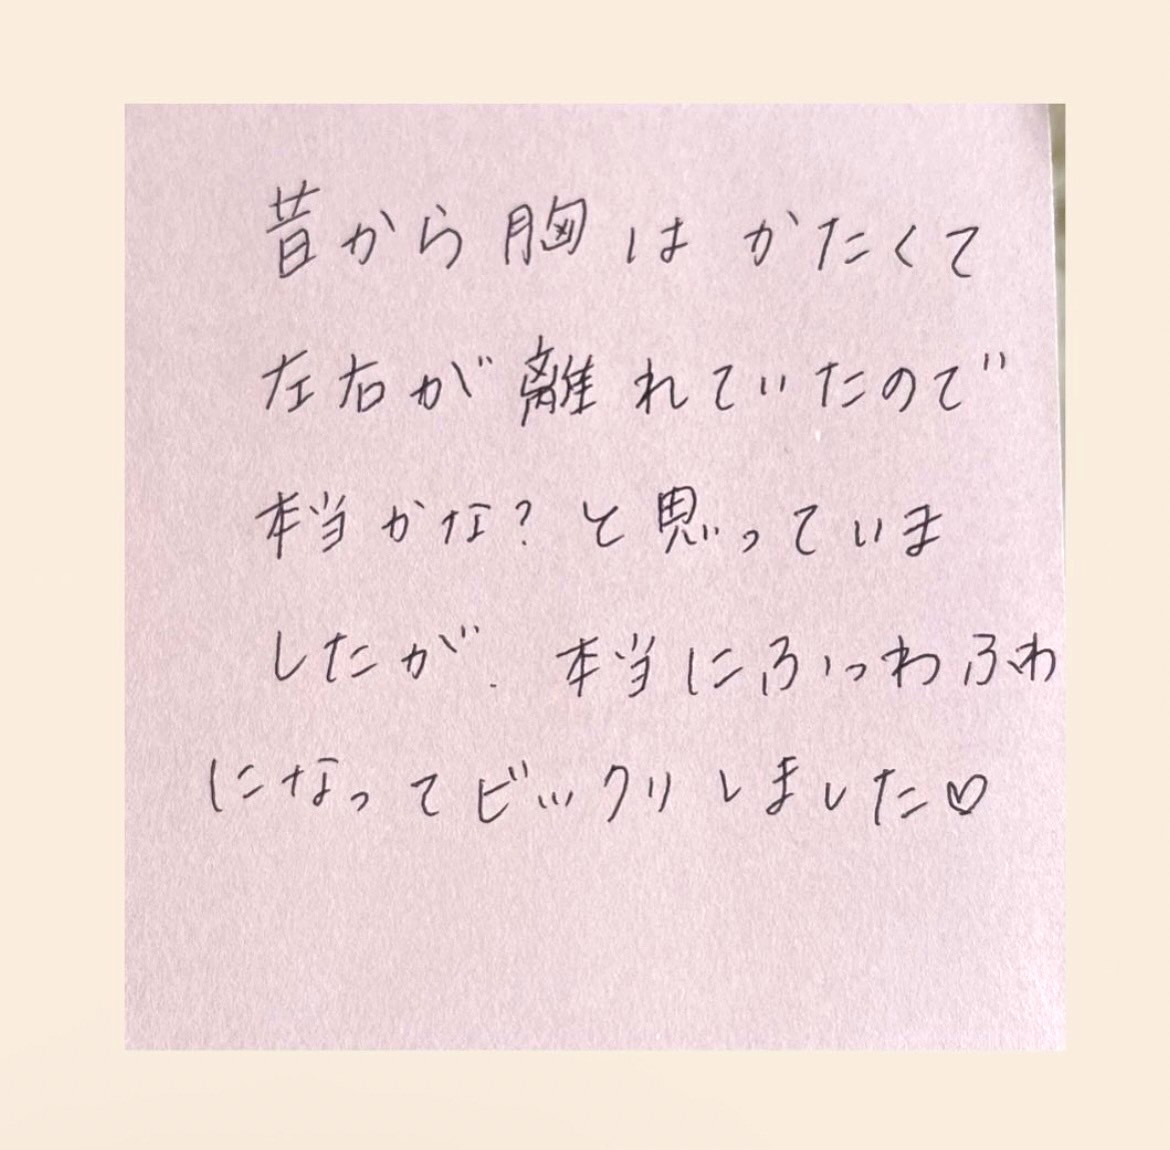 昔から胸はかたくて
左右が離れていたので
本当かな?と思っていま
したが、本当にふっわふわ
になってビックリしました♡